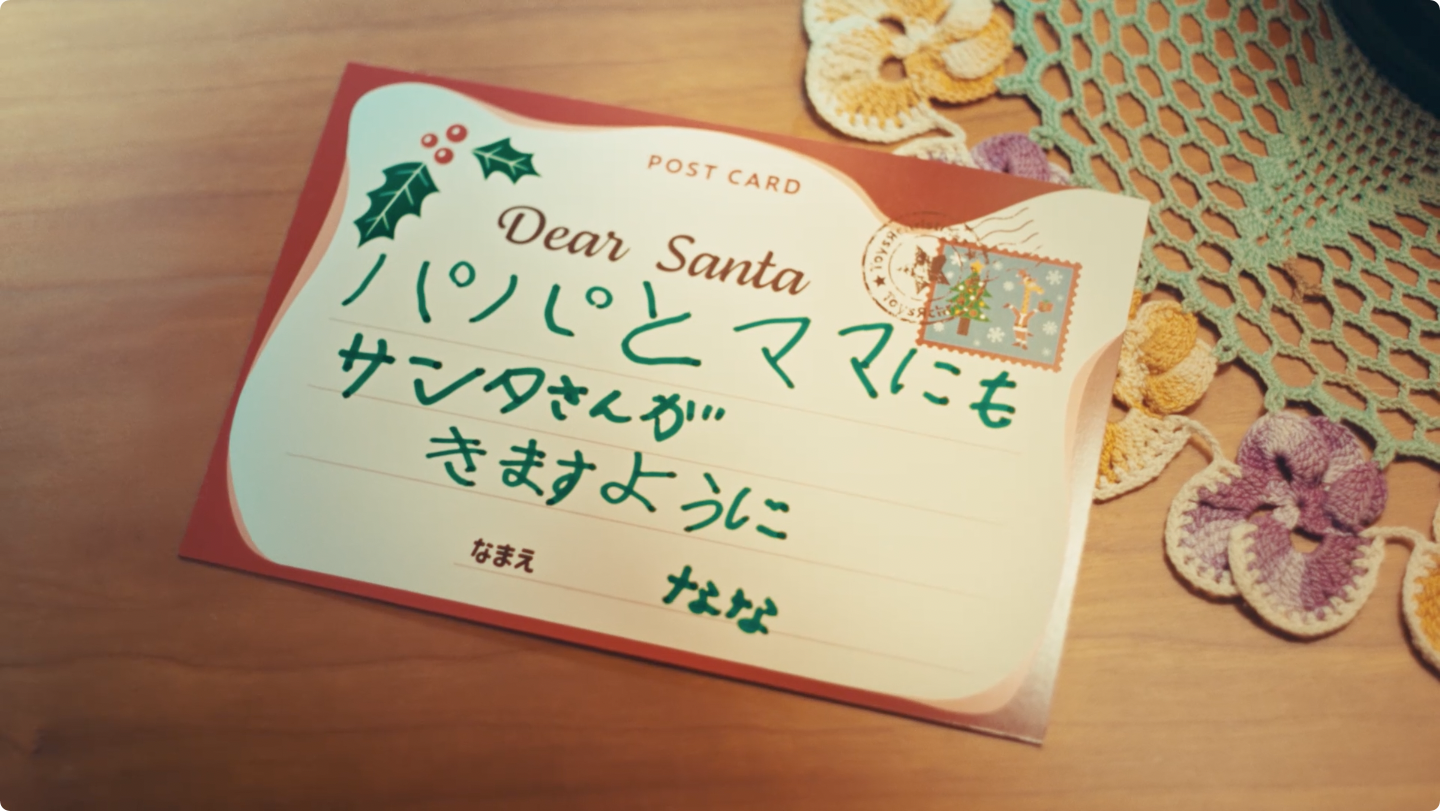 POST CARD
Dear Santa
パパとママにも
サンタさんが
きますように
なまえ なな